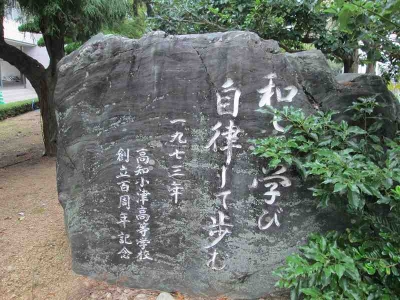 和して学び
自律して歩む
一九七三年
高知小津高等学校
創立百周年記念